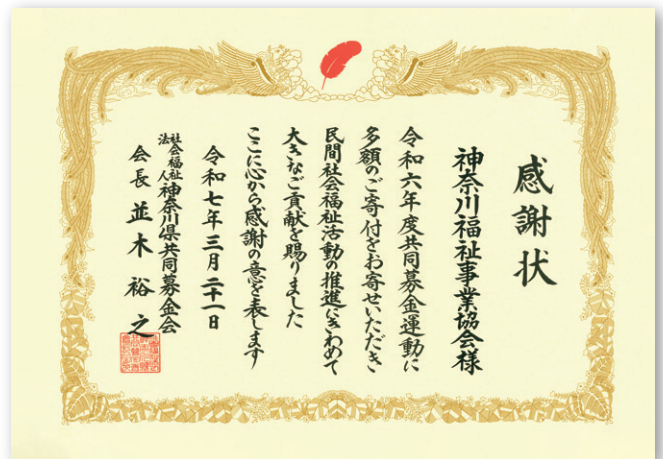 感謝状
神奈川福祉事業協会様
令和六年度共同募金運動に
多額のご寄付をお寄せいただき
民間社会福祉活動の推進にきわめて
大きなご貢献を賜りました
ここに心から感謝の意を表します
令和七年三月二十一日
社会福祉法人神奈川県共同募金会
会長並木裕之